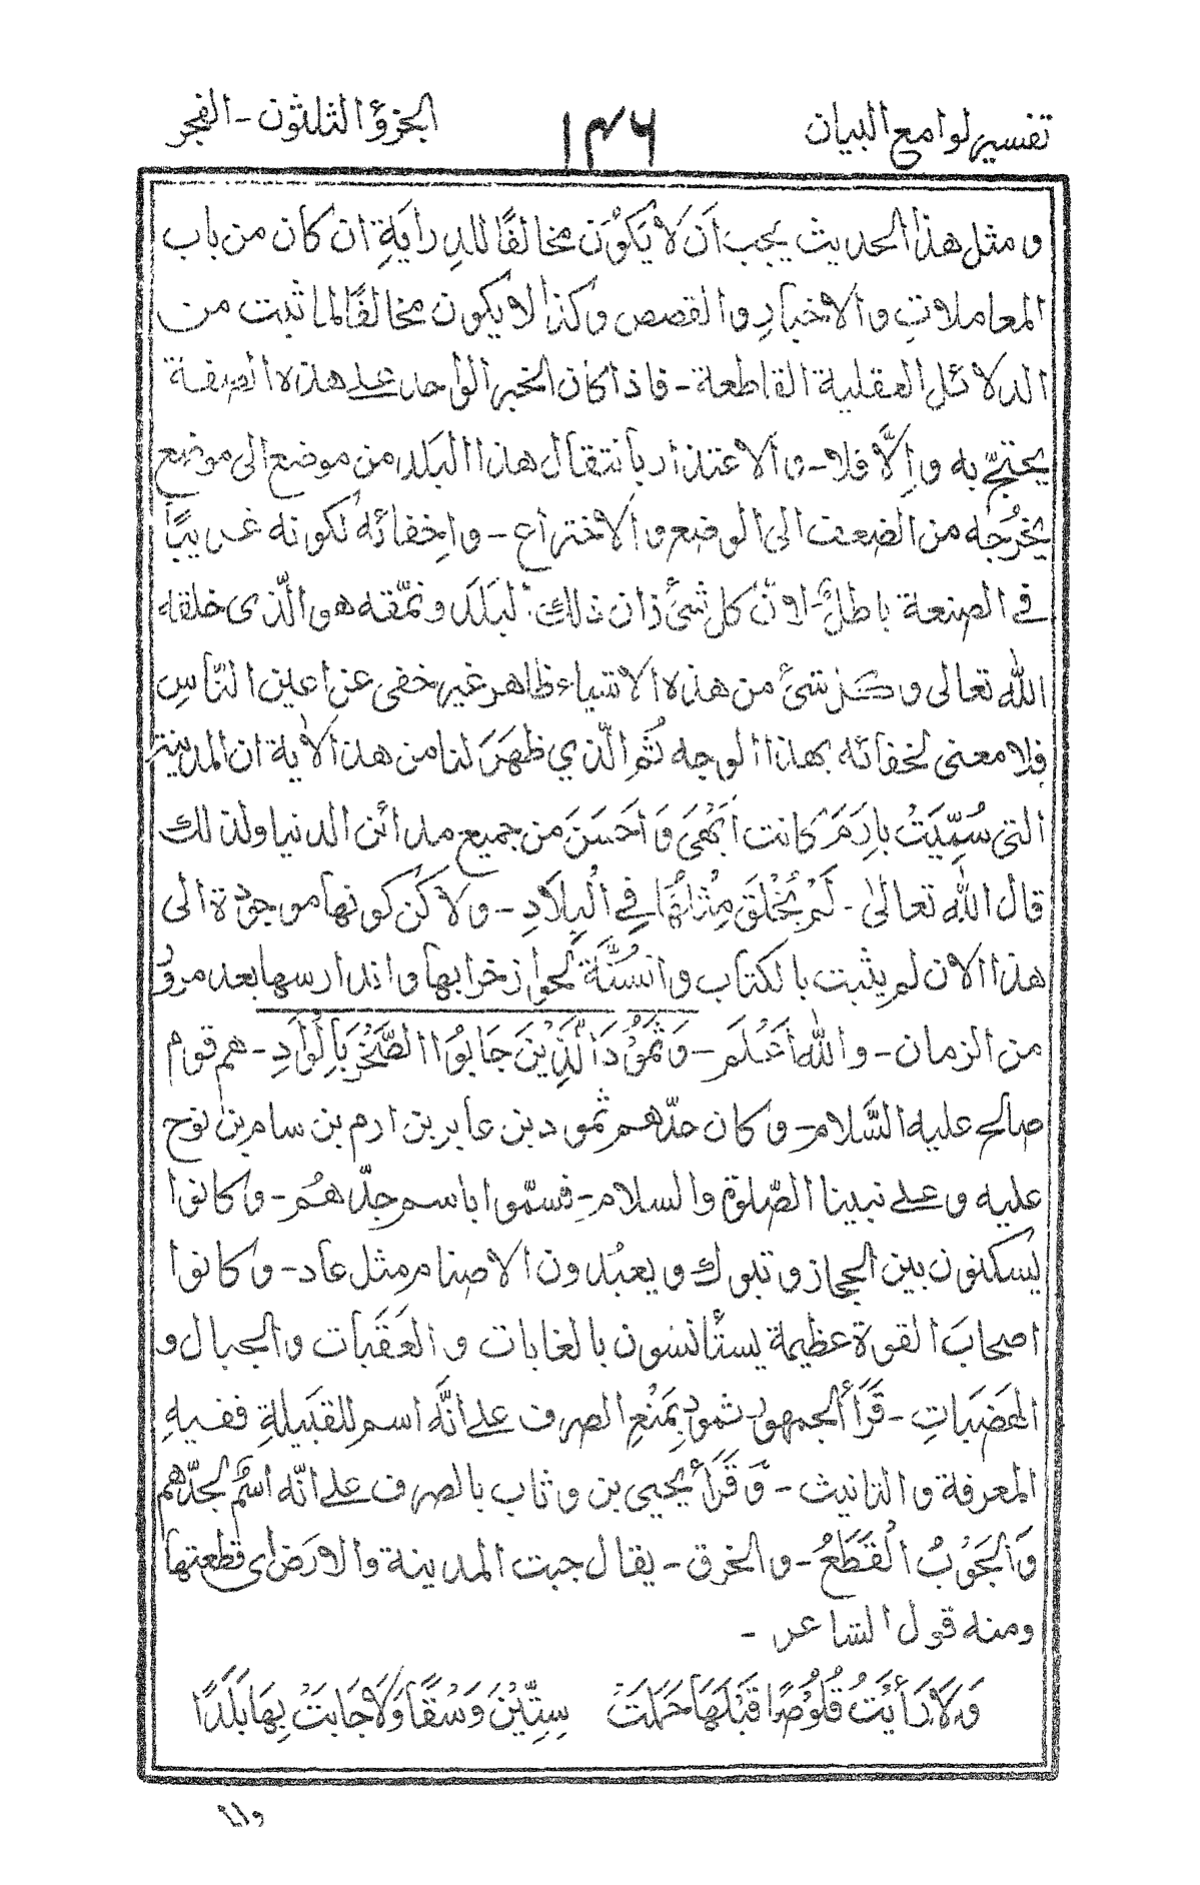 تفسير لوامع البيان ١٣٦ الجزؤ الثلثون - الفجر
ومثل هذا الحديث يجب اَن لَا يَكُوْن مخالفًا للدِرايَةِ ان كان من باب
المعاملاتِ والاخبارِ والقصص وكذا لا يكون مخالفًا لما ثبت من
الدلائل العقلية القاطعة - فاذا كان الخبر الواحد على هذه الصفة
يحتجّ به واِلاَّ فلا - والاعتذار بانتقال هذا البلد من موضع الى موضع
يخرُجه من الضعف الى الوضع والاختراع - واِخفائه لكونه غريبًا
في الصنعة باطلٌ - لانّ كل شئ زان ذلك البَلَدَ ونمّقه هو الّذى خلقه
الله تعالى وكل شئ من هذه الاشياء ظاهر غير خفى عن اعين النّاسِ
فلا معنى لخفائه بهذا الوجه ثُم الّذي ظهَرَ لنا من هذا الأية ان المدينة
التى سُمِّيَتْ بِاِرَمَ كانت اَبْهىَ وَاَحسَنَ من جميع مدائن الدنيا ولذلك
قال الله تعالىٰ - لَمْ يُخْلَقْ مِثْلُهَا فِي الْبِلَادِ - ولاكن كونها موجودة الى
هذا الان لم يثبت بالكتاب والسُنَّة لجواز خرابها واندارسها بعد مروُ
من الزمان - والله اَعْلَم - وَثَمُوْدَ الَّذِيْنَ جَابُوا الصَّخْرَ بِالْوَادِ - هم قوم
صالح عليه السَّلام - وكان جدّهم ثمود بن عابر بن ارم بن سام بن نوح
عليه وعلى نبينا الصّلوة والسلام - فسمّوا باسم جدّهُم - وكانوا
يسكنون بين الحجاز وتبوك ويعبُدون الاصنام مثل عاد - وكانوا
اصحابَ القوة عظيمة يستأنسون بالغابات والعَقَبات والجبال و
الهَضَباتِ - قَرَأَ الجمهور ثمود بِمَنْعِ الصرف على انَّه اسم للقبيلةِ ففيهِ
المعرفة والتانيث - وَقَرَأَ يحيى بن وثاب بالصرف على انّه اسْمُ لجدّهم
وَالجَوْبُ الْقَطَعُ - والخرق - يقال جبت المدينة والارَضَ اى قطعتها
ومنه قول الشاعر -
وَلَا رَأَيْتُ قُلُوْصًا قَبْلَهَا حَمَلَتْ سِتِّيْنَ وَسْقًا وَلَاجَابَتْ بِهَا بَلَدًا